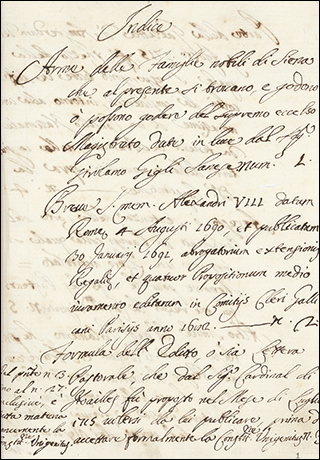 Indice
Arme delle Famiglie nobili di Siena
che al presente si trovano, e godono
ò possono godere del supremo eccelso
Magistrato, date in luce dal Sig.
Girolamo Gigli Sanese Num. 1.
Breve S. mem. Alexandri VIII datum
Romę 4 Augusti 1690, et publicatum
30 January 1691, abrogatorium extensionis
Regalię, et quatuor Propositionum medio
iuramento editarum in Comitijs Cleri Galli
cani Parisijs anno 1682. n. 2.
Formula dell' ò sia Lettera
Pastorale, che dal Sig. Cardinal di
Noailles fu proposto nel Mese di
1715 volersi da lui publicare prima d'
accettare formalmente la Constit. Unigenitus
al n. 27.
materia
1